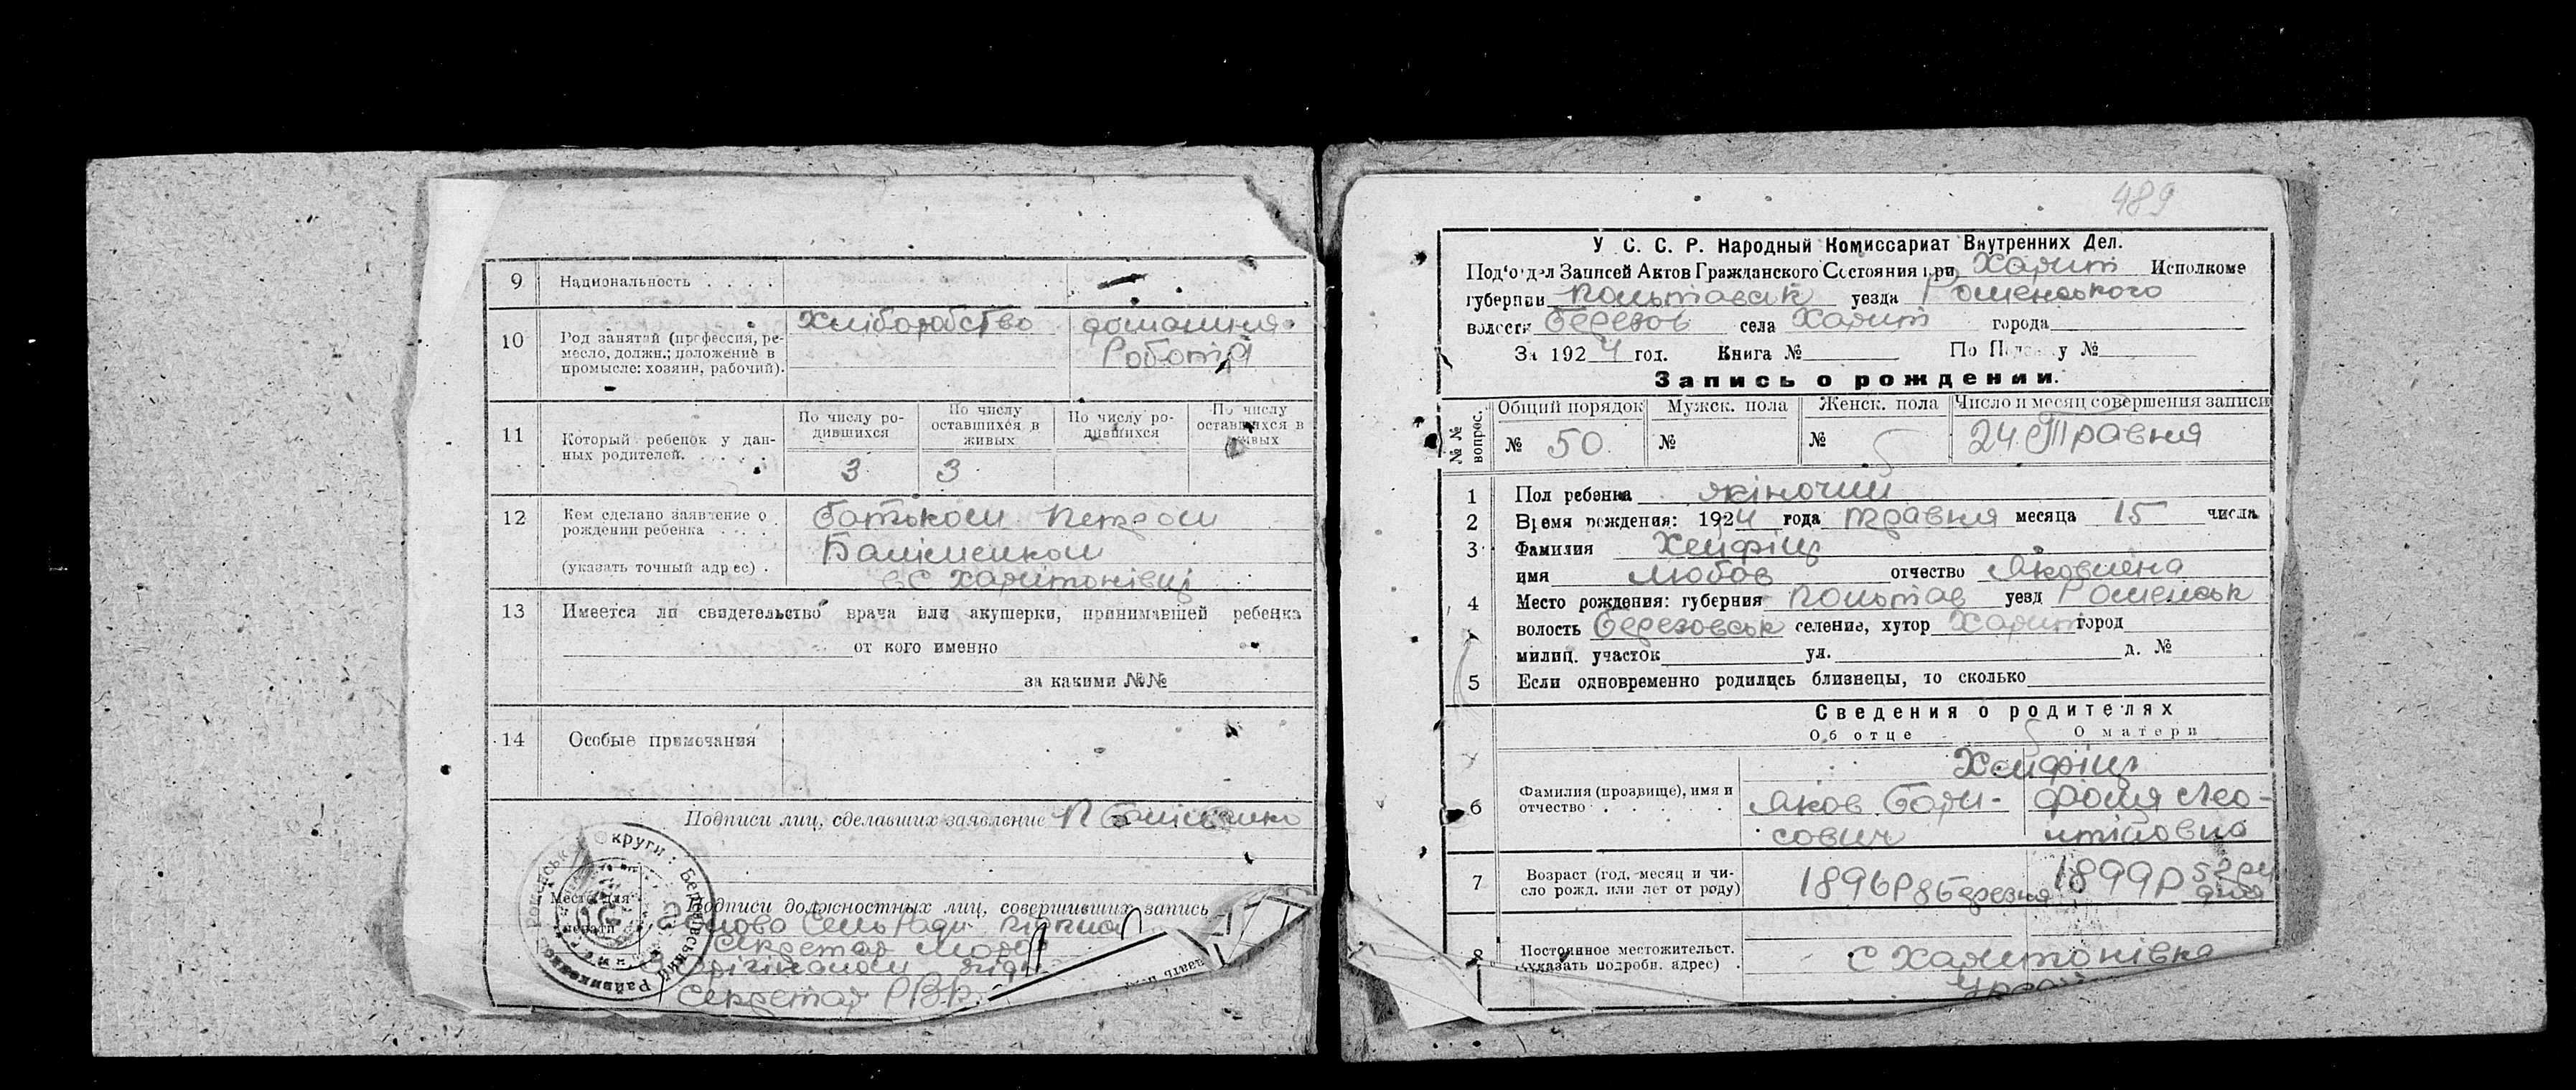 9 Национальность . . . . —
10 Род занятий (профессия, ремесло, должн.; положение в промысле: хозяин, рабочий). Хліборобство домашня Робота
11 Который ребенок у данных родителей. . . . .
По числу родившихся По числу оставшихся в живых По числу родившихся По числу оставшихся в живых
3 3
12 Кем сделано заявление о рождении ребенка . . . .
(указать точный адрес) .
батьком Петром
в С Харитонівці
13 Имеется ли свидетельство врача или акушерки, принимавшей ребенка
от кого именно
за какими №№
14 Особые примечания
Подписи лиц, сделавших заявление П
Место для печати
Подписи должностных лиц, совершивших запись
Голова Сель Ради
Секретар
З Орігіналом
Секретар РВК
489
У С. С. Р. Народный Комиссариат Внутренних Дел.
Подотдел Записей Актов Гражданского Состояния при Харит Исполкоме
губернии Полтавськ уезда Роменського
волости Березов села Харит города
За 1924 год. Книга № По Порядку №
Запись о рождении.
№№ вопрос. Общий порядок Мужск. пола Женск. пола Число и месяц совершения записи
№ 50 № № 24 Травня
1 Пол ребенка жіночий
2 Время рождения: 1924 года травня месяца 15 числа
3 Фамилия Хейфіц
имя Любов отчество Яковлена
4 Место рождения: губерния Полтав уезд Роменськ
волость Березовськ селение, хутор Харит город
милиц. участок ул. д. №
5 Если одновременно родились близнецы, то сколько
Сведения о родителях
Об отце О матери
Хейфіц
6 Фамилия (прозвище), имя и отчество . . . . . Яков Борисович
7 Возраст (год, месяц и число рожд. или лет от роду) 1896р 8 березня 1899р
8 Постоянное местожительст. (указать подробн. адрес) . С Харитонівка